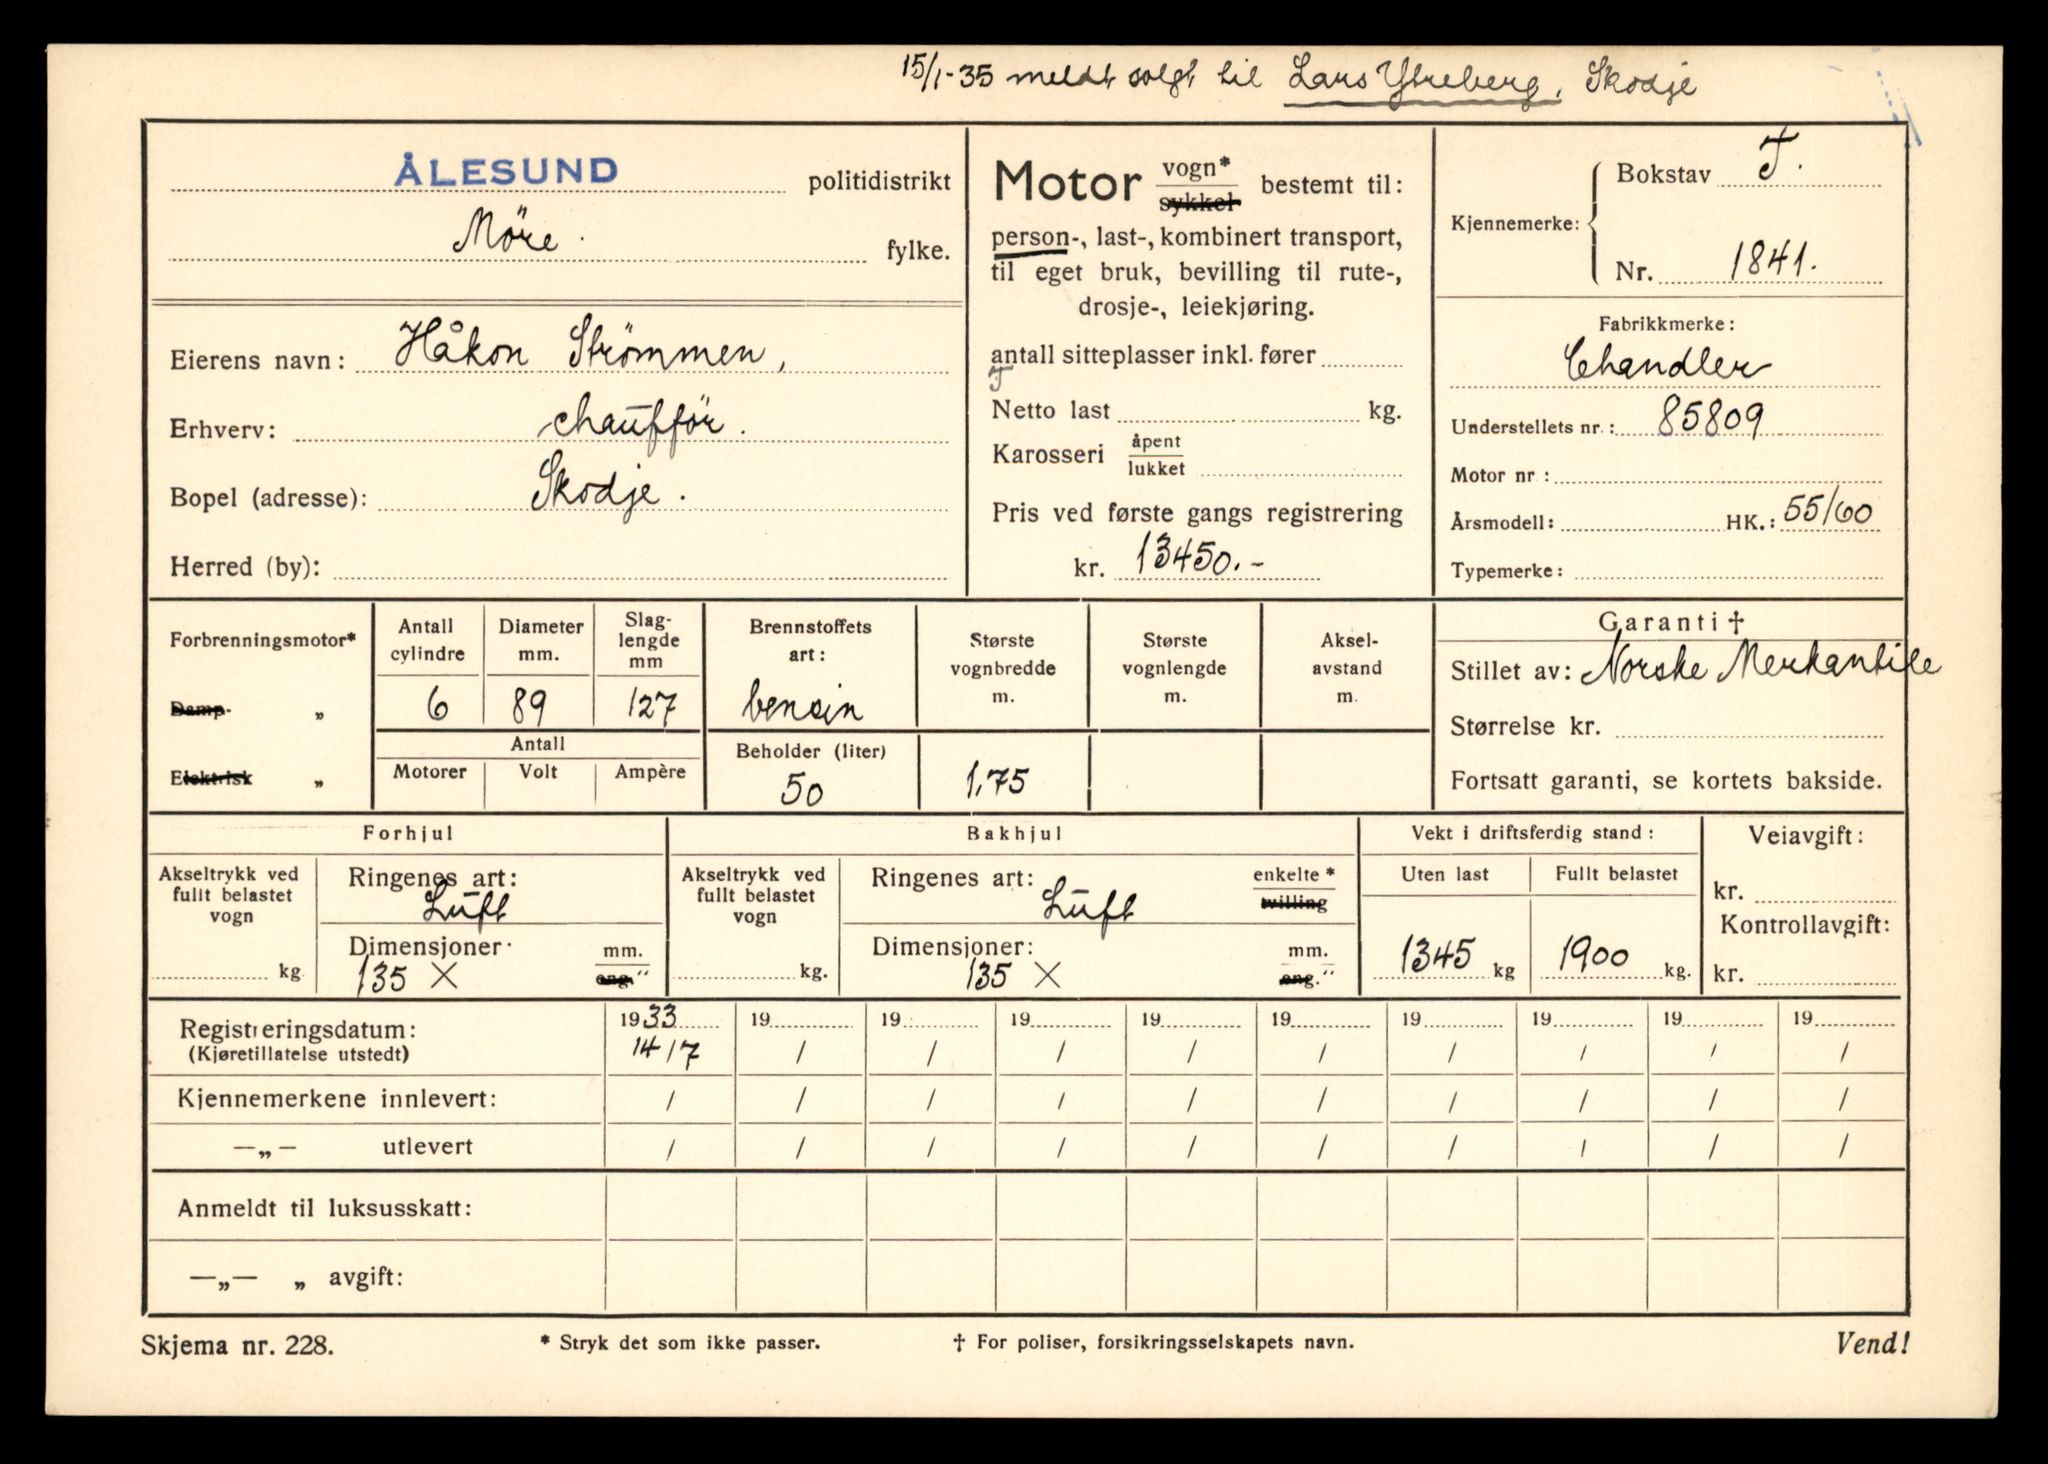 15/1-35 meldt solgt til Lars Ytreberg, Skodje
ÅLESUND politidistrikt
Möre. fylke.
Eierens navn: Håkon Strömmen,
Erhverv: chaufför.
Bopel (adresse): Skodje.
Herred (by):
Motor vogn* sykkel bestemt til:
person-, last-, kombinert transport,
til eget bruk, bevilling til rute-,
drosje-, leiekjøring.
antall sitteplasser inkl. fører
Netto last kg.
Karosseri åpent lukket
Pris ved første gangs registrering
kr. 13450.-
Kjennemerke: Bokstav T.
Nr. 1841.
Fabrikkmerke:
Chandler
Understellets nr.: 85809
Motor nr:
Årsmodell: HK.: 55/60
Typemerke:
Forbrenningsmotor*
Damp- „
Elektrisk „
Antall cylindre
6
Diameter mm.
89
Slag-
lengde
mm
127
Antall
Motorer Volt Ampère
Brennstoffets
art:
bensin
Beholder (liter)
50
Største
vognbredde
m.
1,75
Største
vognlengde
m.
Aksel-
avstand
m.
Garanti †
Stillet av: Norske Merkantile
Størrelse kr.
Fortsatt garanti, se kortets bakside.
Forhjul
Akseltrykk ved
fullt belastet
vogn
kg.
Ringenes art:
Luft
Dimensjoner: mm.
135 X eng.“
Bakhjul
Akseltrykk ved
fullt belastet
vogn
kg.
Ringenes art: enkelte*
Luft tvilling
Dimensjoner: mm.
135 X eng.“
Vekt i driftsferdig stand:
Uten last Fullt belastet
1345 kg 1900 kg.
Veiavgift:
kr.
Kontrollavgift:
kr.
Registreringsdatum: 1933 19 19 19 19 19 19 19 19 19
(Kjøretillatelse utstedt) 14/7 / / / / / / / / /
Kjennemerkene innlevert: / / / / / / / / / /
—„— utlevert / / / / / / / / / /
Anmeldt til luksusskatt:
—„— „ avgift:
Skjema nr. 228. * Stryk det som ikke passer. † For poliser, forsikringsselskapets navn. Vend!